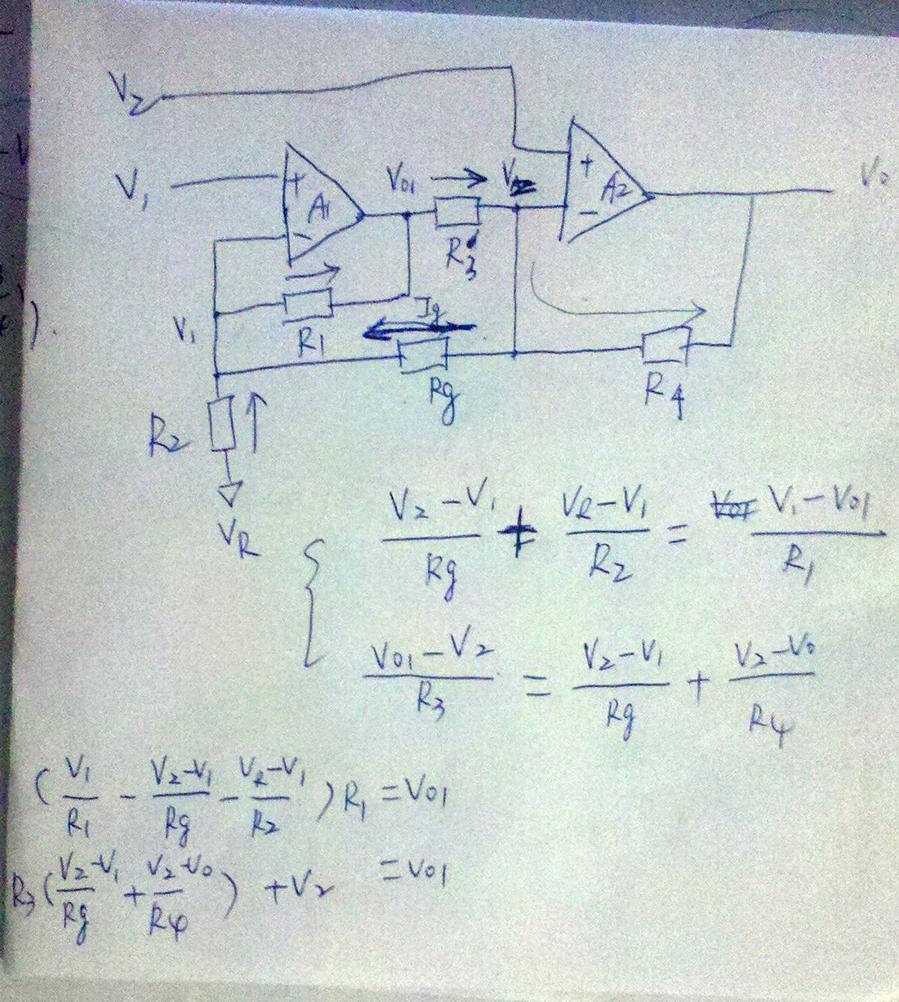 V2
V1 + A1 - V01 R3 + A2 - V0
V1 R1 Ig
Rg R4
R2
VR
{ (V2-V1)/Rg + (VR-V1)/R2 = (V1-V01)/R1
(V01-V2)/R3 = (V2-V1)/Rg + (V2-V0)/R4
(V1/R1 - (V2-V1)/Rg - (VR-V1)/R2) R1 = V01
R3((V2-V1)/Rg + (V2-V0)/R4) + V2 = V01
).